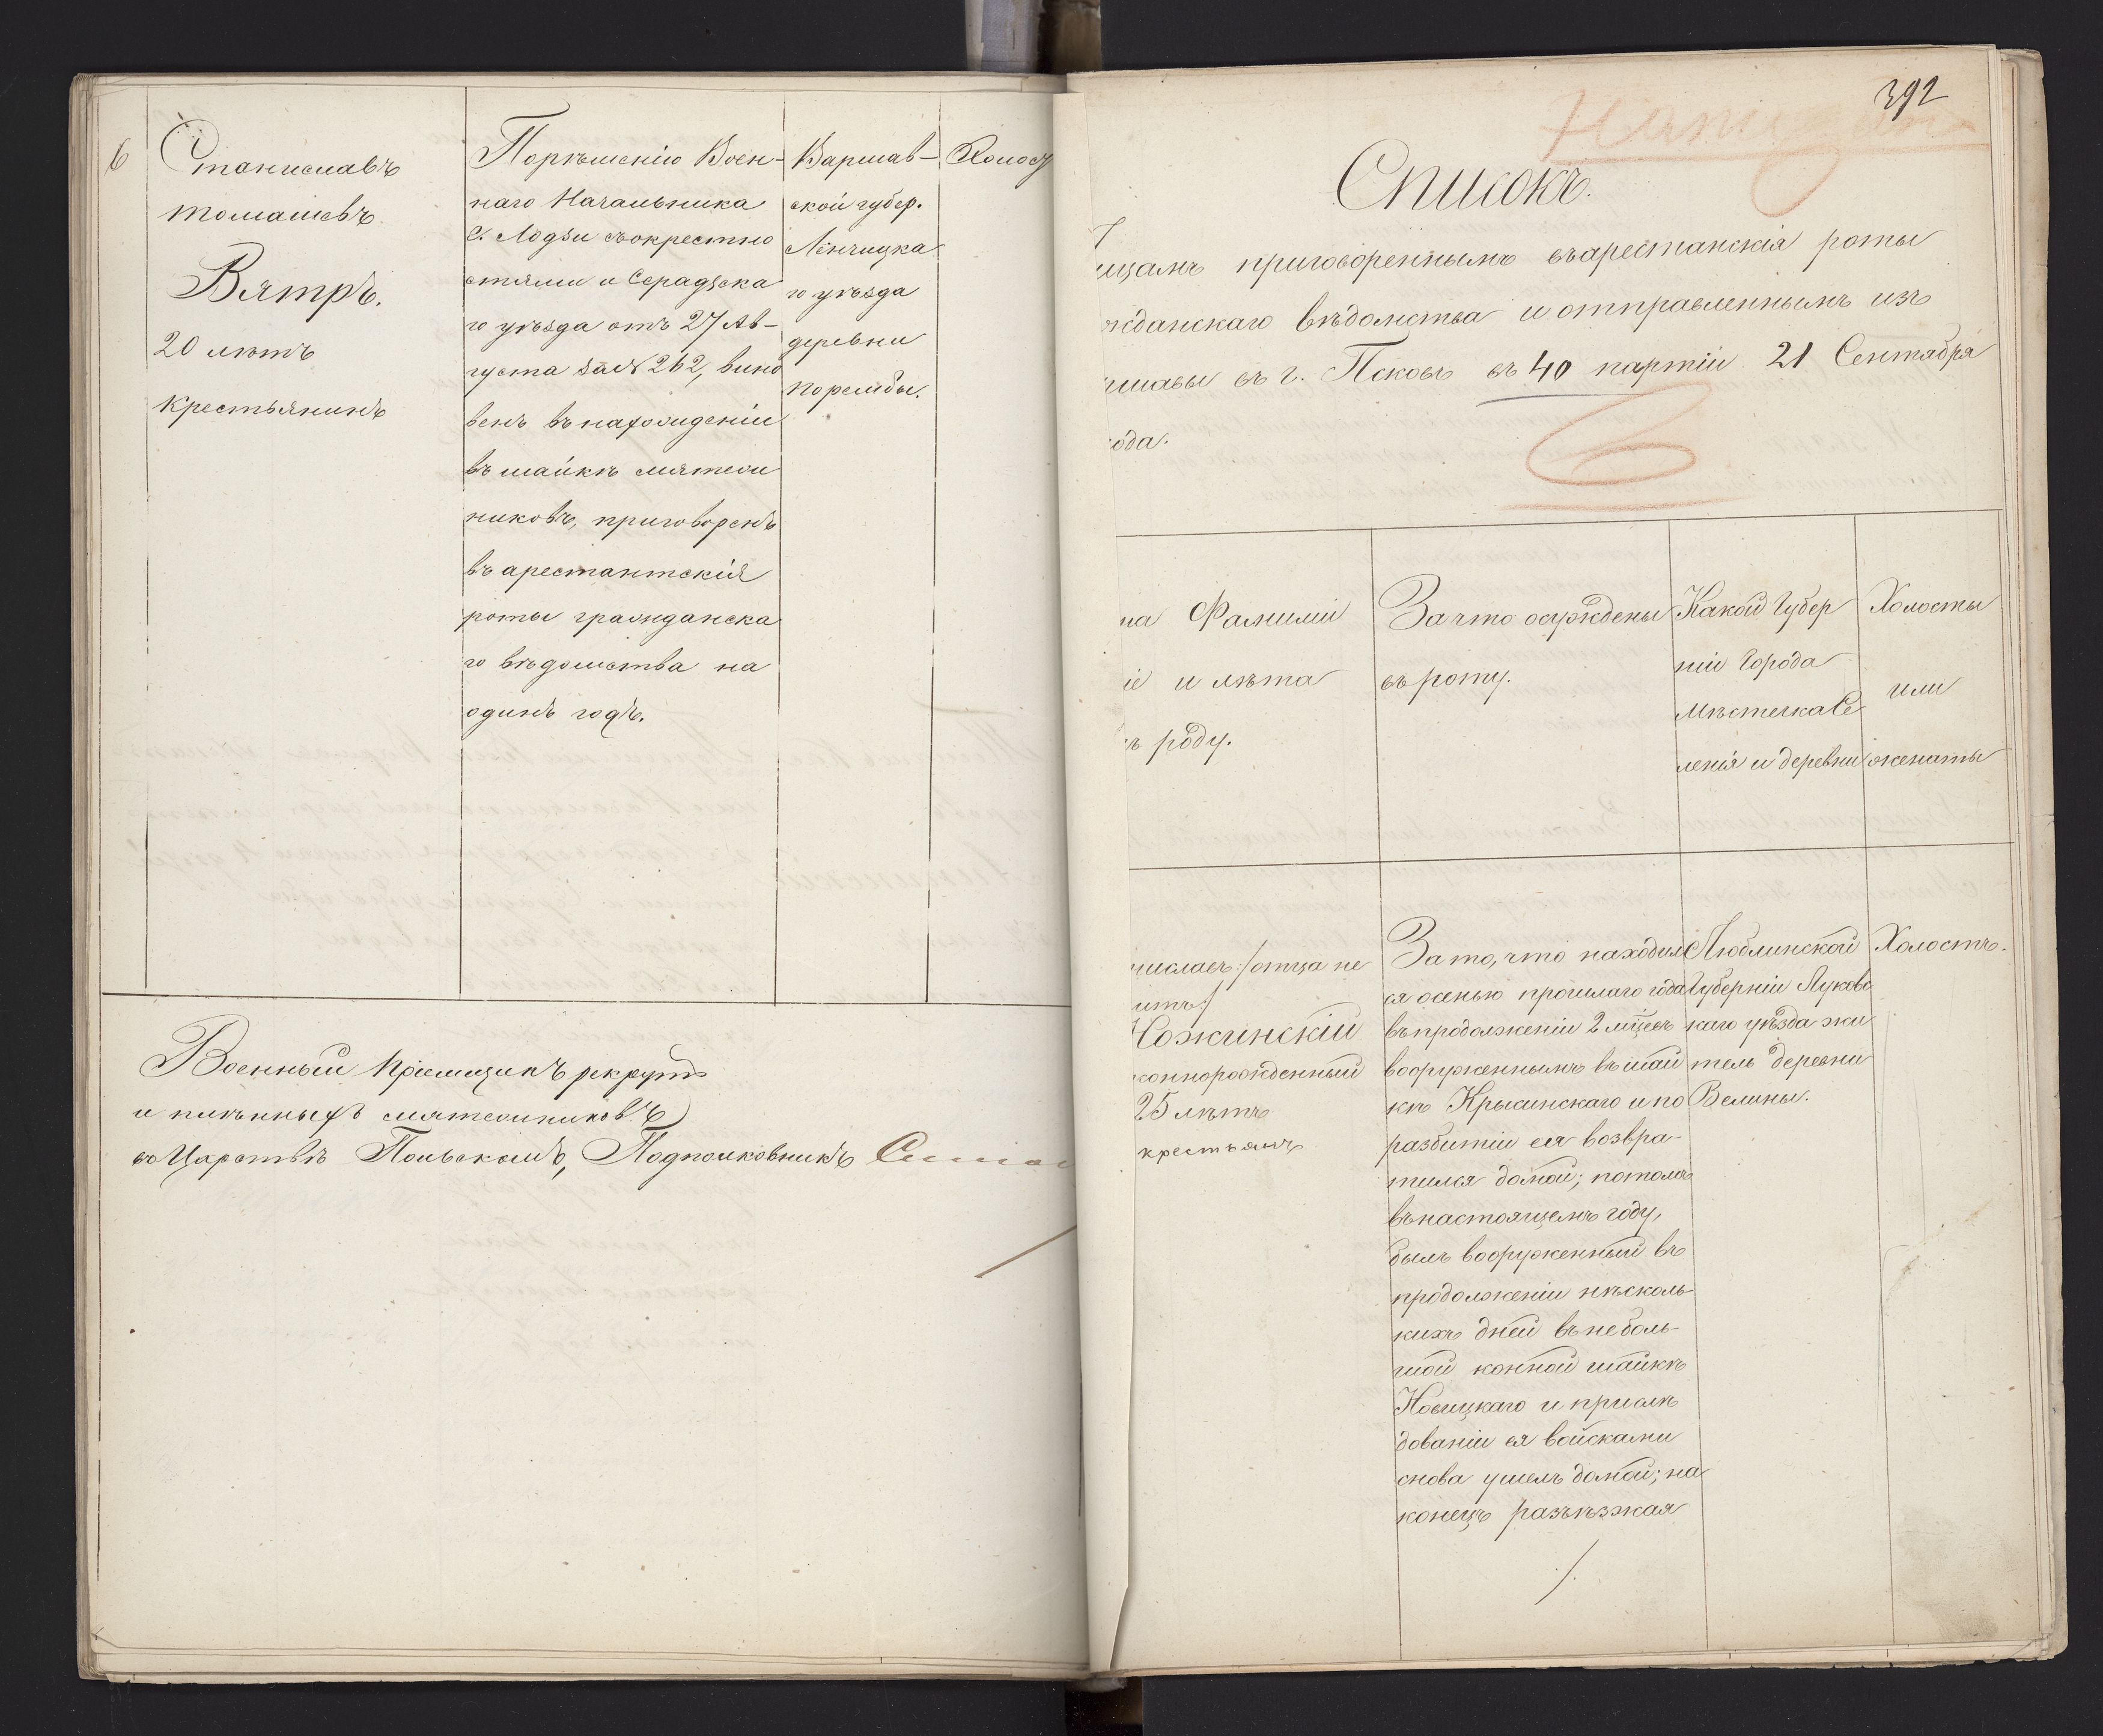 6
Станиславъ
Томашевъ
Вятръ.
20 лѣтъ
крестьянинъ
Порѣшенію Воен-
наго Начальника
г. Лодзи съокрестно
стями и Серадзска
го уѣзда отъ 27 Ав-
густа за № 262, вино
венъ въ нахожденіи
въ шайкѣ мятеж
никовъ, приговоренъ
въ арестантскія
роты гражданска
го вѣдомства на
одинъ годъ.
Варшав-
ской губер.
Ленчицка
го уѣзда
деревни
Порембы.
Холост
Военный Пріемщикъ рекрутъ
и плѣнныхъ мятежниковъ
въ Царствѣ Польскомъ, Подполковникъ
392
Списокъ.
ицамъ приговореннымъ въарестанскія роты
жданскаго вѣдомства и отправленнымъ изъ
ршавы въ г. Псковъ въ 40 партіи 21 Сентября
ода.
на Фамиліи
іе и лѣта
ъ роду.
За что осуждены
въ роту.
Какой Губер
ніи Города
Мѣстечка Се
ленія и деревни
Холосты
или
женаты
/отца не
итъ/
Ножинскій
коннорожденный
25 лѣтъ
крестьянъ
За то, что находил
ся осенью прошлаго года
въпродолженіи 2 мѣсѣ
вооруженнымъ въ шай
кѣ Крысинскаго и по
разбитіи ея возвра-
тился домой; потомъ
въ настоящемъ году,
былъ вооруженный въ
продолженіи нѣсколь-
кихъ дней въ неболь-
шой конной шайкѣ
Новицкаго и прислѣ
дованіи ея войсками
снова ушелъ домой; на
конецъ разъѣзжая
Люблинской
Губерніи Луковс
каго уѣзда жи
тель деревни
Велины.
Холостъ.